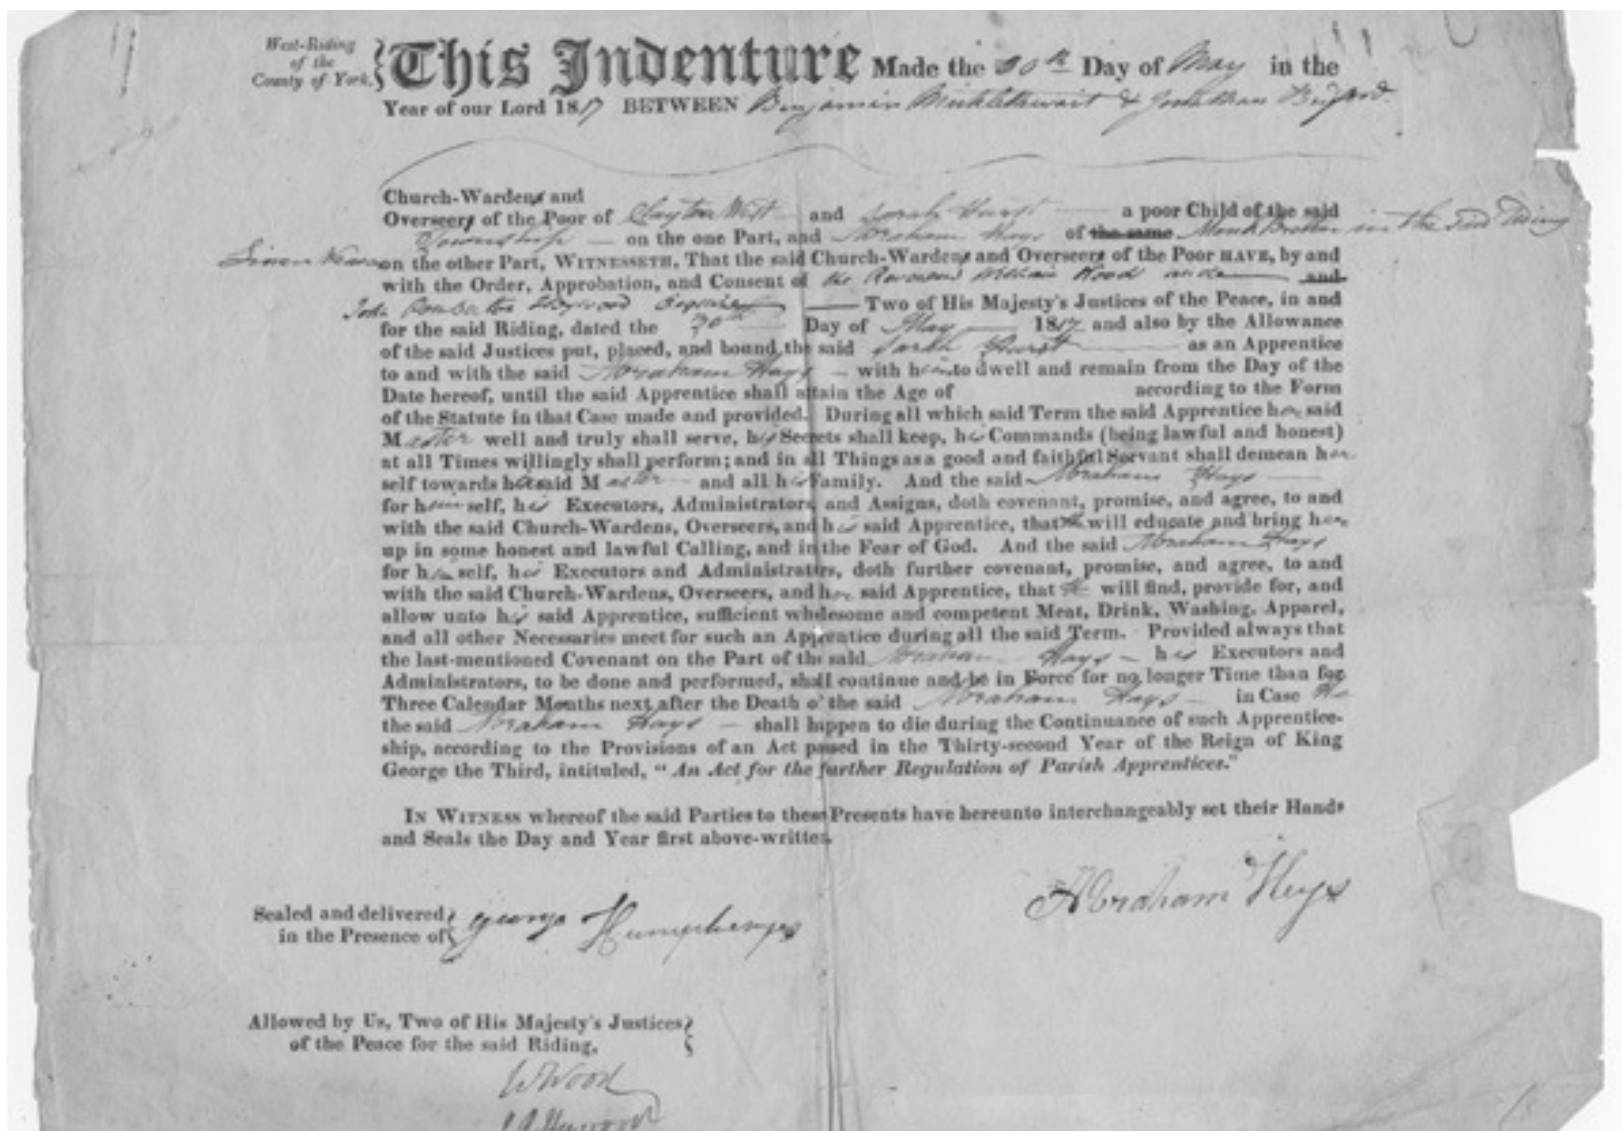 West-Riding
of the
County of York.
This Indenture Made the 30th Day of May in the
Year of our Lord 1817 BETWEEN Benjamin Micklethwait & Jonathan
Church-Wardens and
Overseers of the Poor of Clayton West and Sarah Hurst a poor Child of the said
Township on the one Part, and Abraham Hays of the same Monk Bretton in the said Riding
Linen Weaver on the other Part, WITNESSETH, That the said Church-Wardens and Overseers of the Poor HAVE, by and
with the Order, Approbation, and Consent of the Reverend William Wood and and
John Pemberton Heywood Esquire Two of His Majesty's Justices of the Peace, in and
for the said Riding, dated the 30th Day of May 1817 and also by the Allowance
of the said Justices put, placed, and bound the said Sarah Hurst as an Apprentice
to and with the said Abraham Hays with him to dwell and remain from the Day of the
Date hereof, until the said Apprentice shall attain the Age of according to the Form
of the Statute in that Case made and provided. During all which said Term the said Apprentice her said
Master well and truly shall serve, his Secrets shall keep, his Commands (being lawful and honest)
at all Times willingly shall perform; and in all Things as a good and faithful Servant shall demean her
self towards her said Master and all his Family. And the said Abraham Hays
for himself, his Executors, Administrators, and Assigns, doth covenant, promise, and agree, to and
with the said Church-Wardens, Overseers, and his said Apprentice, that he will educate and bring her
up in some honest and lawful Calling, and in the Fear of God. And the said Abraham Hays
for himself, his Executors and Administrators, doth further covenant, promise, and agree, to and
with the said Church-Wardens, Overseers, and her said Apprentice, that he will find, provide for, and
allow unto his said Apprentice, sufficient wholesome and competent Meat, Drink, Washing, Apparel,
and all other Necessaries meet for such an Apprentice during all the said Term. Provided always that
the last-mentioned Covenant on the Part of the said Abraham Hays his Executors and
Administrators, to be done and performed, shall continue and be in Force for no longer Time than for
Three Calendar Months next after the Death of the said Abraham Hays in Case he
the said Abraham Hays shall happen to die during the Continuance of such Apprentice-
ship, according to the Provisions of an Act passed in the Thirty-second Year of the Reign of King
George the Third, intituled, "An Act for the further Regulation of Parish Apprentices."
IN WITNESS whereof the said Parties to these Presents have hereunto interchangeably set their Hands
and Seals the Day and Year first above-written.
Abraham Heys
Sealed and delivered
in the Presence of George Humpherys
Allowed by Us, Two of His Majesty's Justices
of the Peace for the said Riding,
W Wood